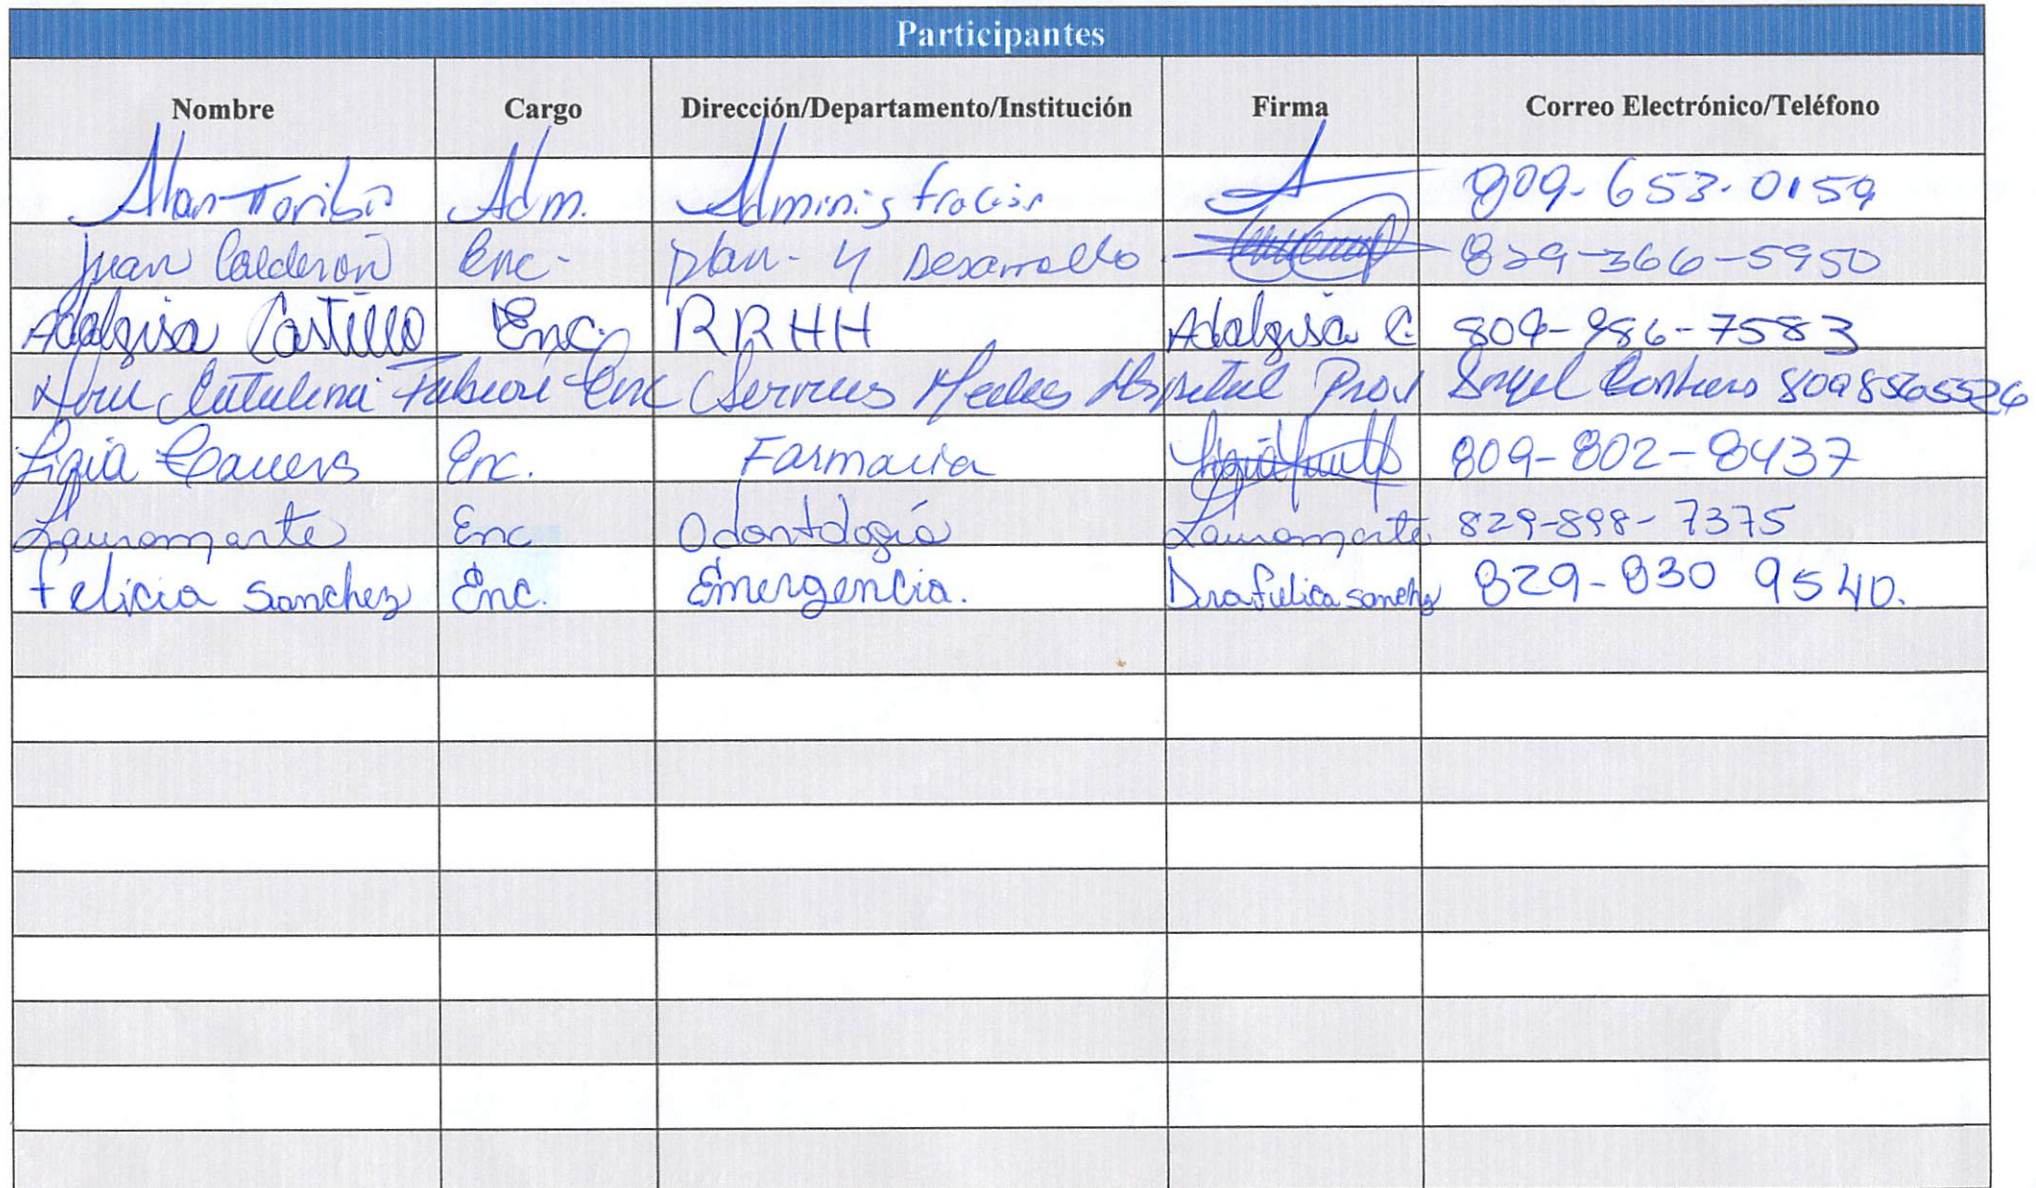 Participantes
Nombre Cargo Dirección/Departamento/Institución Firma Correo Electrónico/Teléfono
Alan Toribio Adm. Administración 809-653-0159
Juan Calderon Enc- plan- y Desarrollo 829-366-5950
Adalgisa Castillo Enc. RRHH Adalgisa C. 809-986-7583
Catalina Enc Servicios Medicos Hospital Prov 8098565526
Ligia Enc. Farmacia 809-802-8437
Lauramarte Enc Odontología Lauramarte 829-898-7375
Felicia Sanchez Enc. Emergencia. Dra Felicia Sanchez 829-830 9540.